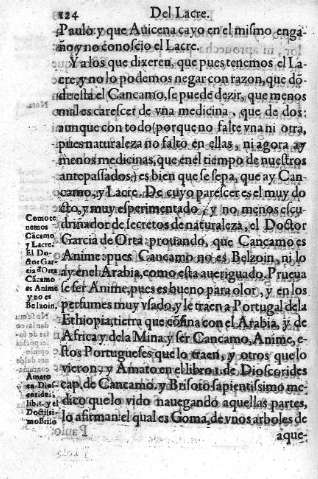 124
Del Lacre.
Paulo: y que Auicena cayo en el mismo enga-
ño, y no conoscio el Lacre.
Y a los que dixeren, que pues tenemos el La-
cre, y no lo podemos negar con razon, que dõ-
de esta el Cancamo, se puede dezir, que menos
mal es carescer de vna medicina, que de dos:
aunque con todo (porque no falte vna ni otra,
pues naturaleza no falto en ellas, ni agora ay
menos medicinas, que en el tiempo de nuestros
antepassados) es bien que se sepa, que ay Can-
camo, y Lacre. De cuyo parescer es el muy do
cto, y muy esperimentado, y no menos escu-
driñador de secretos de naturaleza, el Doctor
Garcia de Orta: prouando, que Cancamo es
Anime: pues Cancamo no es Belzoin, ni lo
ay en el Arabia, como esta aueriguado. Prueua
se ser Anime, pues es bueno para olor, y en los
perfumes muy vsado, y le traen a Portugal de la
Ethiopia, tierra que cõfina con el Arabia, y de
Africa y de la Mina. y ser Cancamo, Anime, e-
stos Portugueses que lo traen, y otros que lo
vieron: y Amato en el libro 1. de Dioscorides
cap. de Cancamo. y Brisoto sapientissimo me-
dico que lo vido nauegando aquellas partes,
lo afirman el qual es Goma, de vnos arboles de
aque-
Como te
nemos
Cãcamo
y Lacre.
El Do-
ctor Gar
cia d'Orta
Cãcamo
es Anime
y no es
Belzoin.
Amato
en Dios-
corides
lib. 1. y el
Doctiss.
mo Briso